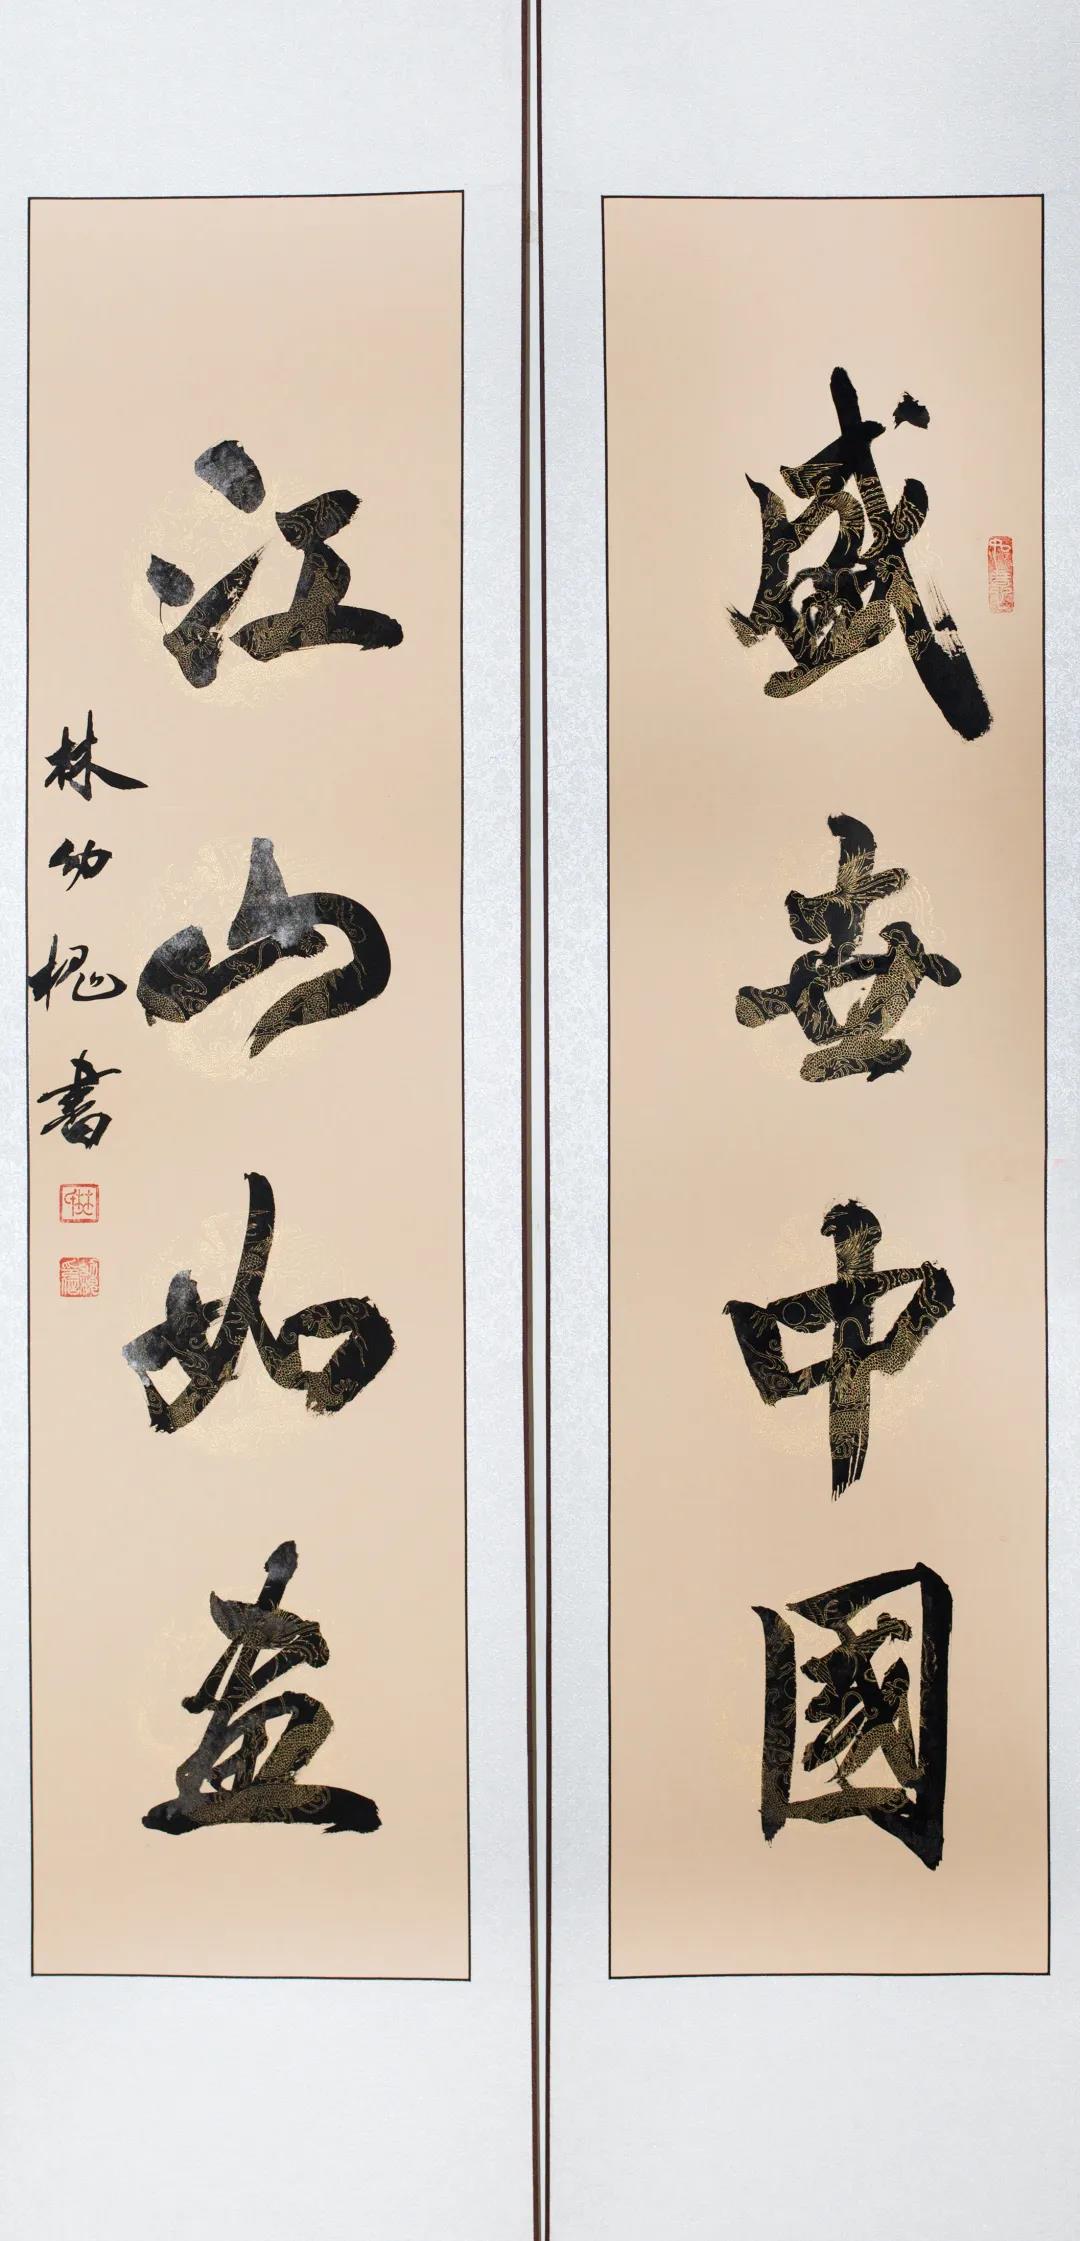 盛世中國
江山如畫
林幼槐書